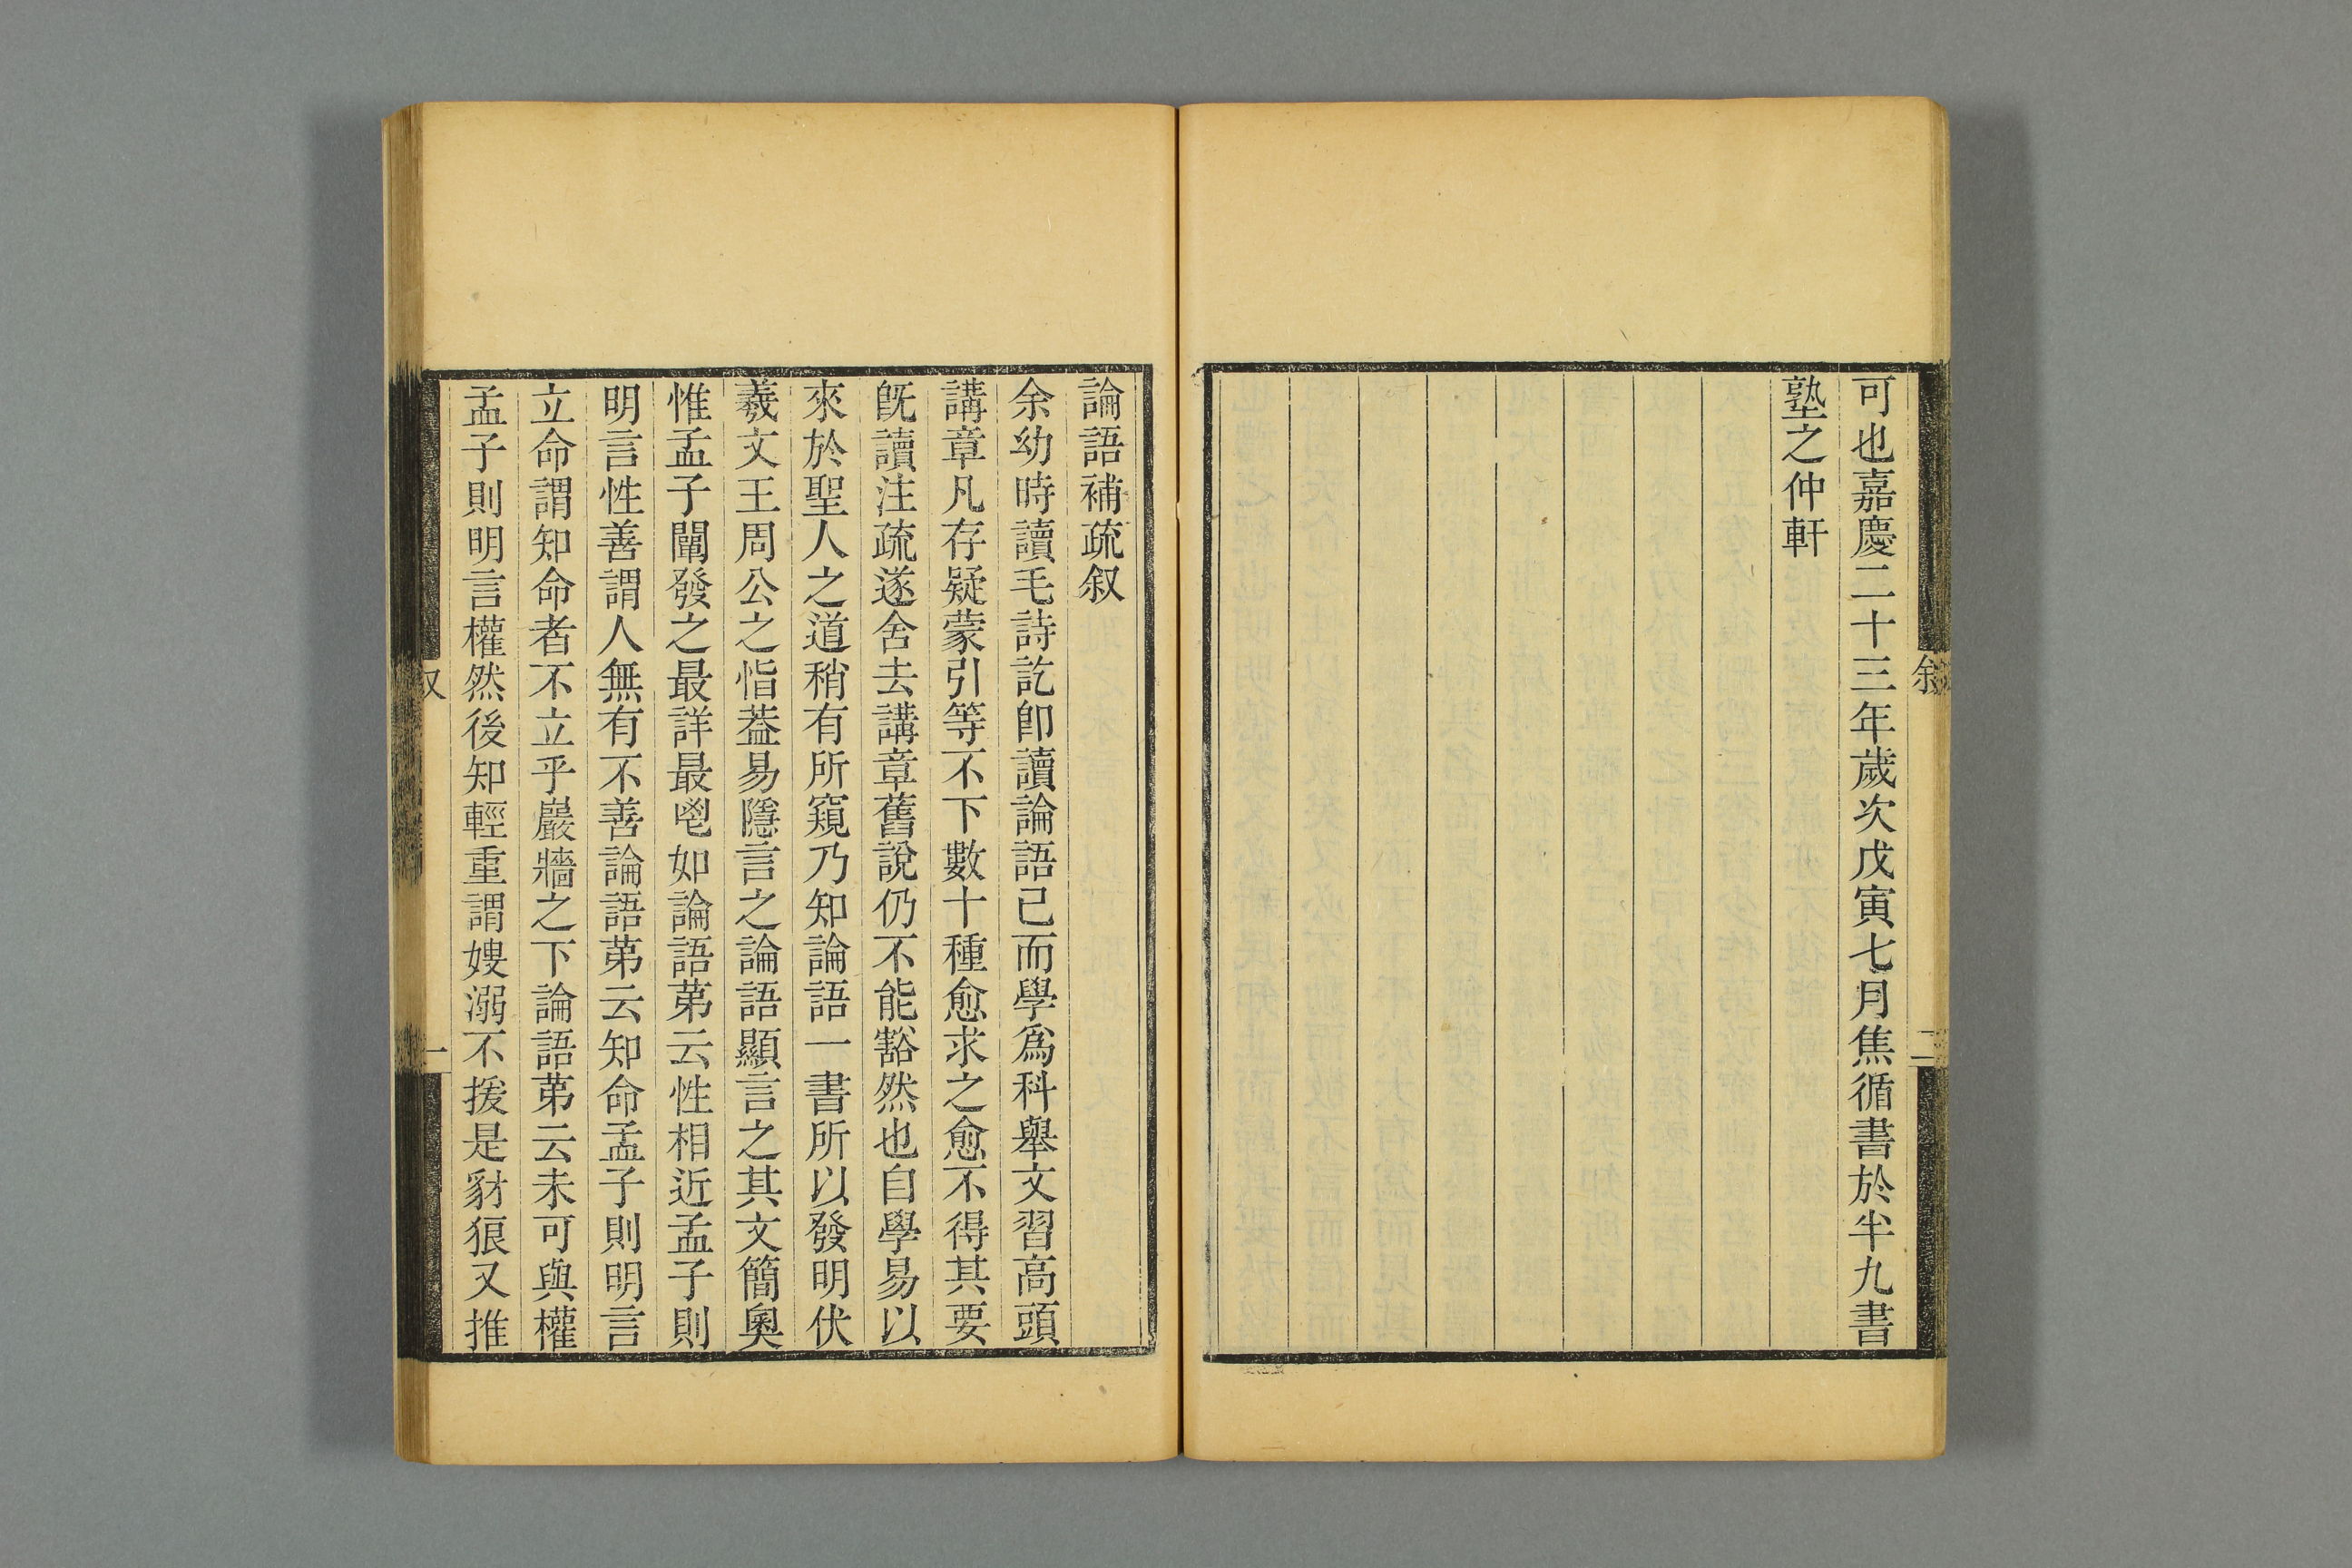 可也嘉慶二十三年歲次戊寅七月焦循書於半九書
塾之仲軒
論語補疏叙
余幼時讀毛詩訖卽讀論語已而學爲科舉文習高頭
講章凡存疑蒙引等不下數十種愈求之愈不得其要
旣讀注疏遂舍去講章舊說仍不能豁然也自學易以
來於聖人之道稍有所窺乃知論語一書所以發明伏
羲文王周公之恉葢易隱言之論語顯言之其文簡奧
惟孟子闡發之最詳最鬯如論語苐云性相近孟子則
明言性善謂人無有不善論語苐云知命孟子則明言
立命謂知命者不立乎巖牆之下論語苐云未可與權
孟子則明言權然後知輕重謂嫂溺不援是豺狼又推